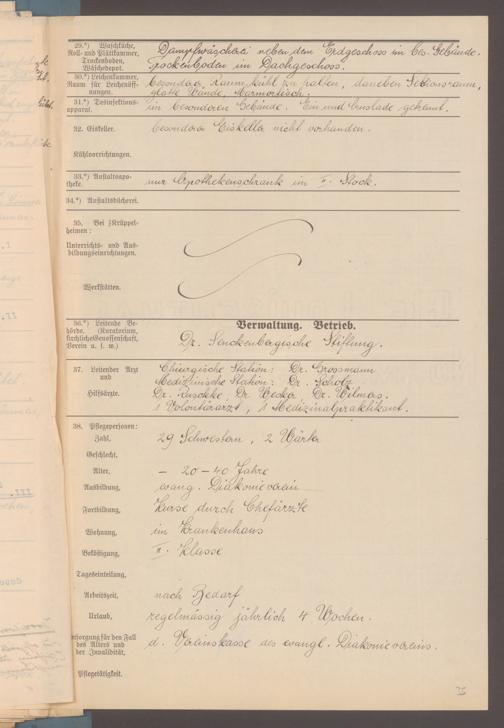 29.*) Waschküche, Roll- und Plättkammer, Trockenboden, Wäschedepot.
Dampfwäscherei neben dem Erdgeschoss im bes. Gebäude.
Trockenboden im Dachgeschoss.
30.*) Leichenkammer, Raum für Leichenöffnungen.
besonderer Raum, kühl zu halten, daneben Sektionsraum,
glatte Wände, Marmortisch.
31.*) Desinfektionsapparat.
im besonderen Gebäude. Ein und Auslade getrennt.
32. Eiskeller.
besonderer Eiskeller nicht vorhanden.
Kühlvorrichtungen.
33.*) Anstaltsapotheke.
nur Apothekenschrank im II. Stock.
34.*) Anstaltsbücherei.
35. Bei Krüppelheimen:
Unterrichts- und Ausbildungseinrichtungen.
Werkstätten.
Verwaltung. Betrieb.
36.*) Leitende Behörde. (Kuratorium, kirchliche Genossenschaft, Verein u. s. w.)
Dr. Senckenbergische Stiftung.
37. Leitender Arzt und
Hilfsärzte.
Chirurgische Station: Dr. Grossmann
Medizinische Station: Dr. Scholz
Dr. Becker, Dr. Wilmas.
1 Volontärarzt, 1 Medizinalpraktikant.
38. Pflegepersonen:
Zahl, 29 Schwestern, 2 Wärter
Geschlecht,
Alter, – 20–40 Jahre
Ausbildung, evang. Diakonieverein
Fortbildung, Kurse durch Chefärzte
Wohnung, im Krankenhaus
Beköstigung, II. Klasse
Tageseinteilung,
Arbeitszeit, nach Bedarf
Urlaub, regelmässig jährlich 4 Wochen.
Versorgung für den Fall des Alters und der Invalidität,
d. Vereinskasse des evangl. Diakonievereins.
Pflegetätigkeit.